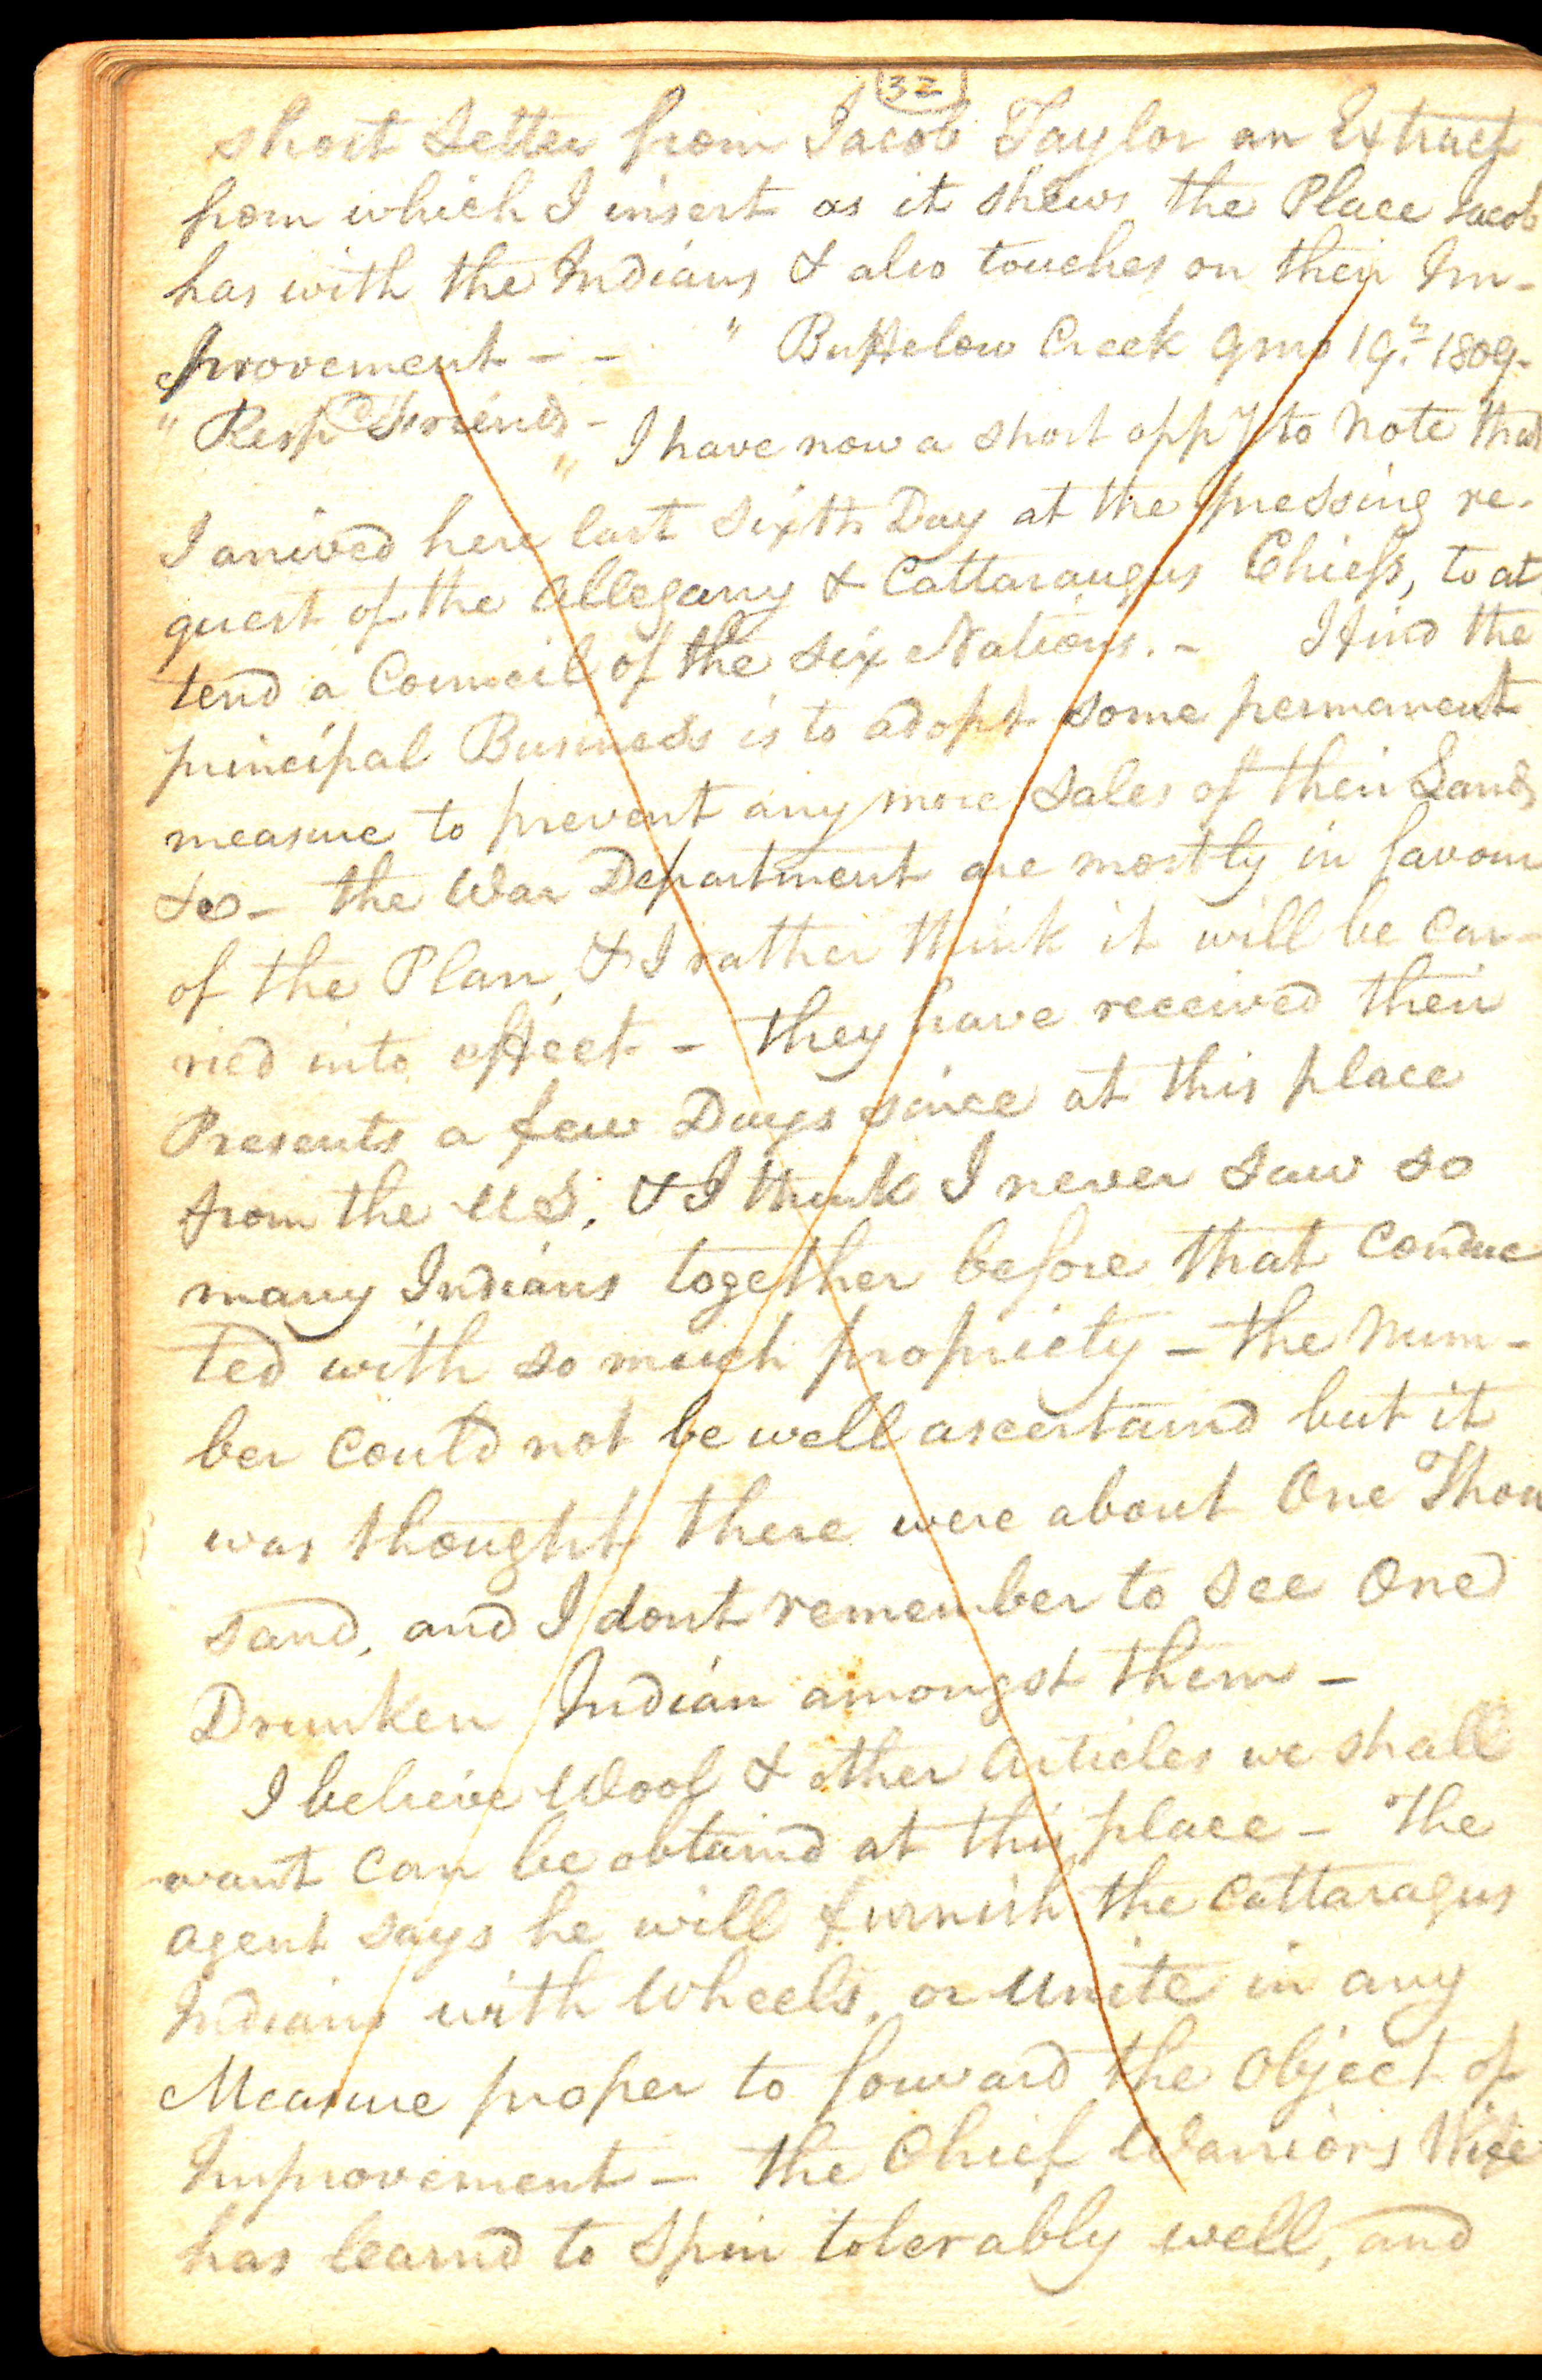 (32)
short Letter from Jacob Taylor an Extract
from which I insert as it shews the Place Jacob
has with the Indians & also touches on their Im-
provement - - " Buffelow Creek 9mo 19.th 1809.
" Respd Friends -
" I have now a short oppy to note that
I arived here last Sixth Day at the pressing re-
quest of the Allegany & Cattaraugus Chiefs, to at
tend a Council of the Six Nations. - I find the
principal Business is to adopt some permanent
measure to prevent any more Sales of their Lands
&c - the War Department are mostly in favour
of the Plan, & I rather think it will be car-
ried into effect - they have received their
Presents a few Days since at this place
from the US, & I think I never saw so
many Indians together before that conduc
ted with so much propriety - the Num-
ber could not be well ascertaind but it
was thought there were about One Thou
sand, and I dont remember to see One
Drunken Indian amongst them -
I believe Wool & other Articles we shall
want can be obtaind at this place - The
agent says he will furnish the Cattaragus
Indians with Wheels, or Unite in any
Measure proper to forward the Object of
Improvement - the Chief Warriors Wife
has learnd to Spin tolerably well, and